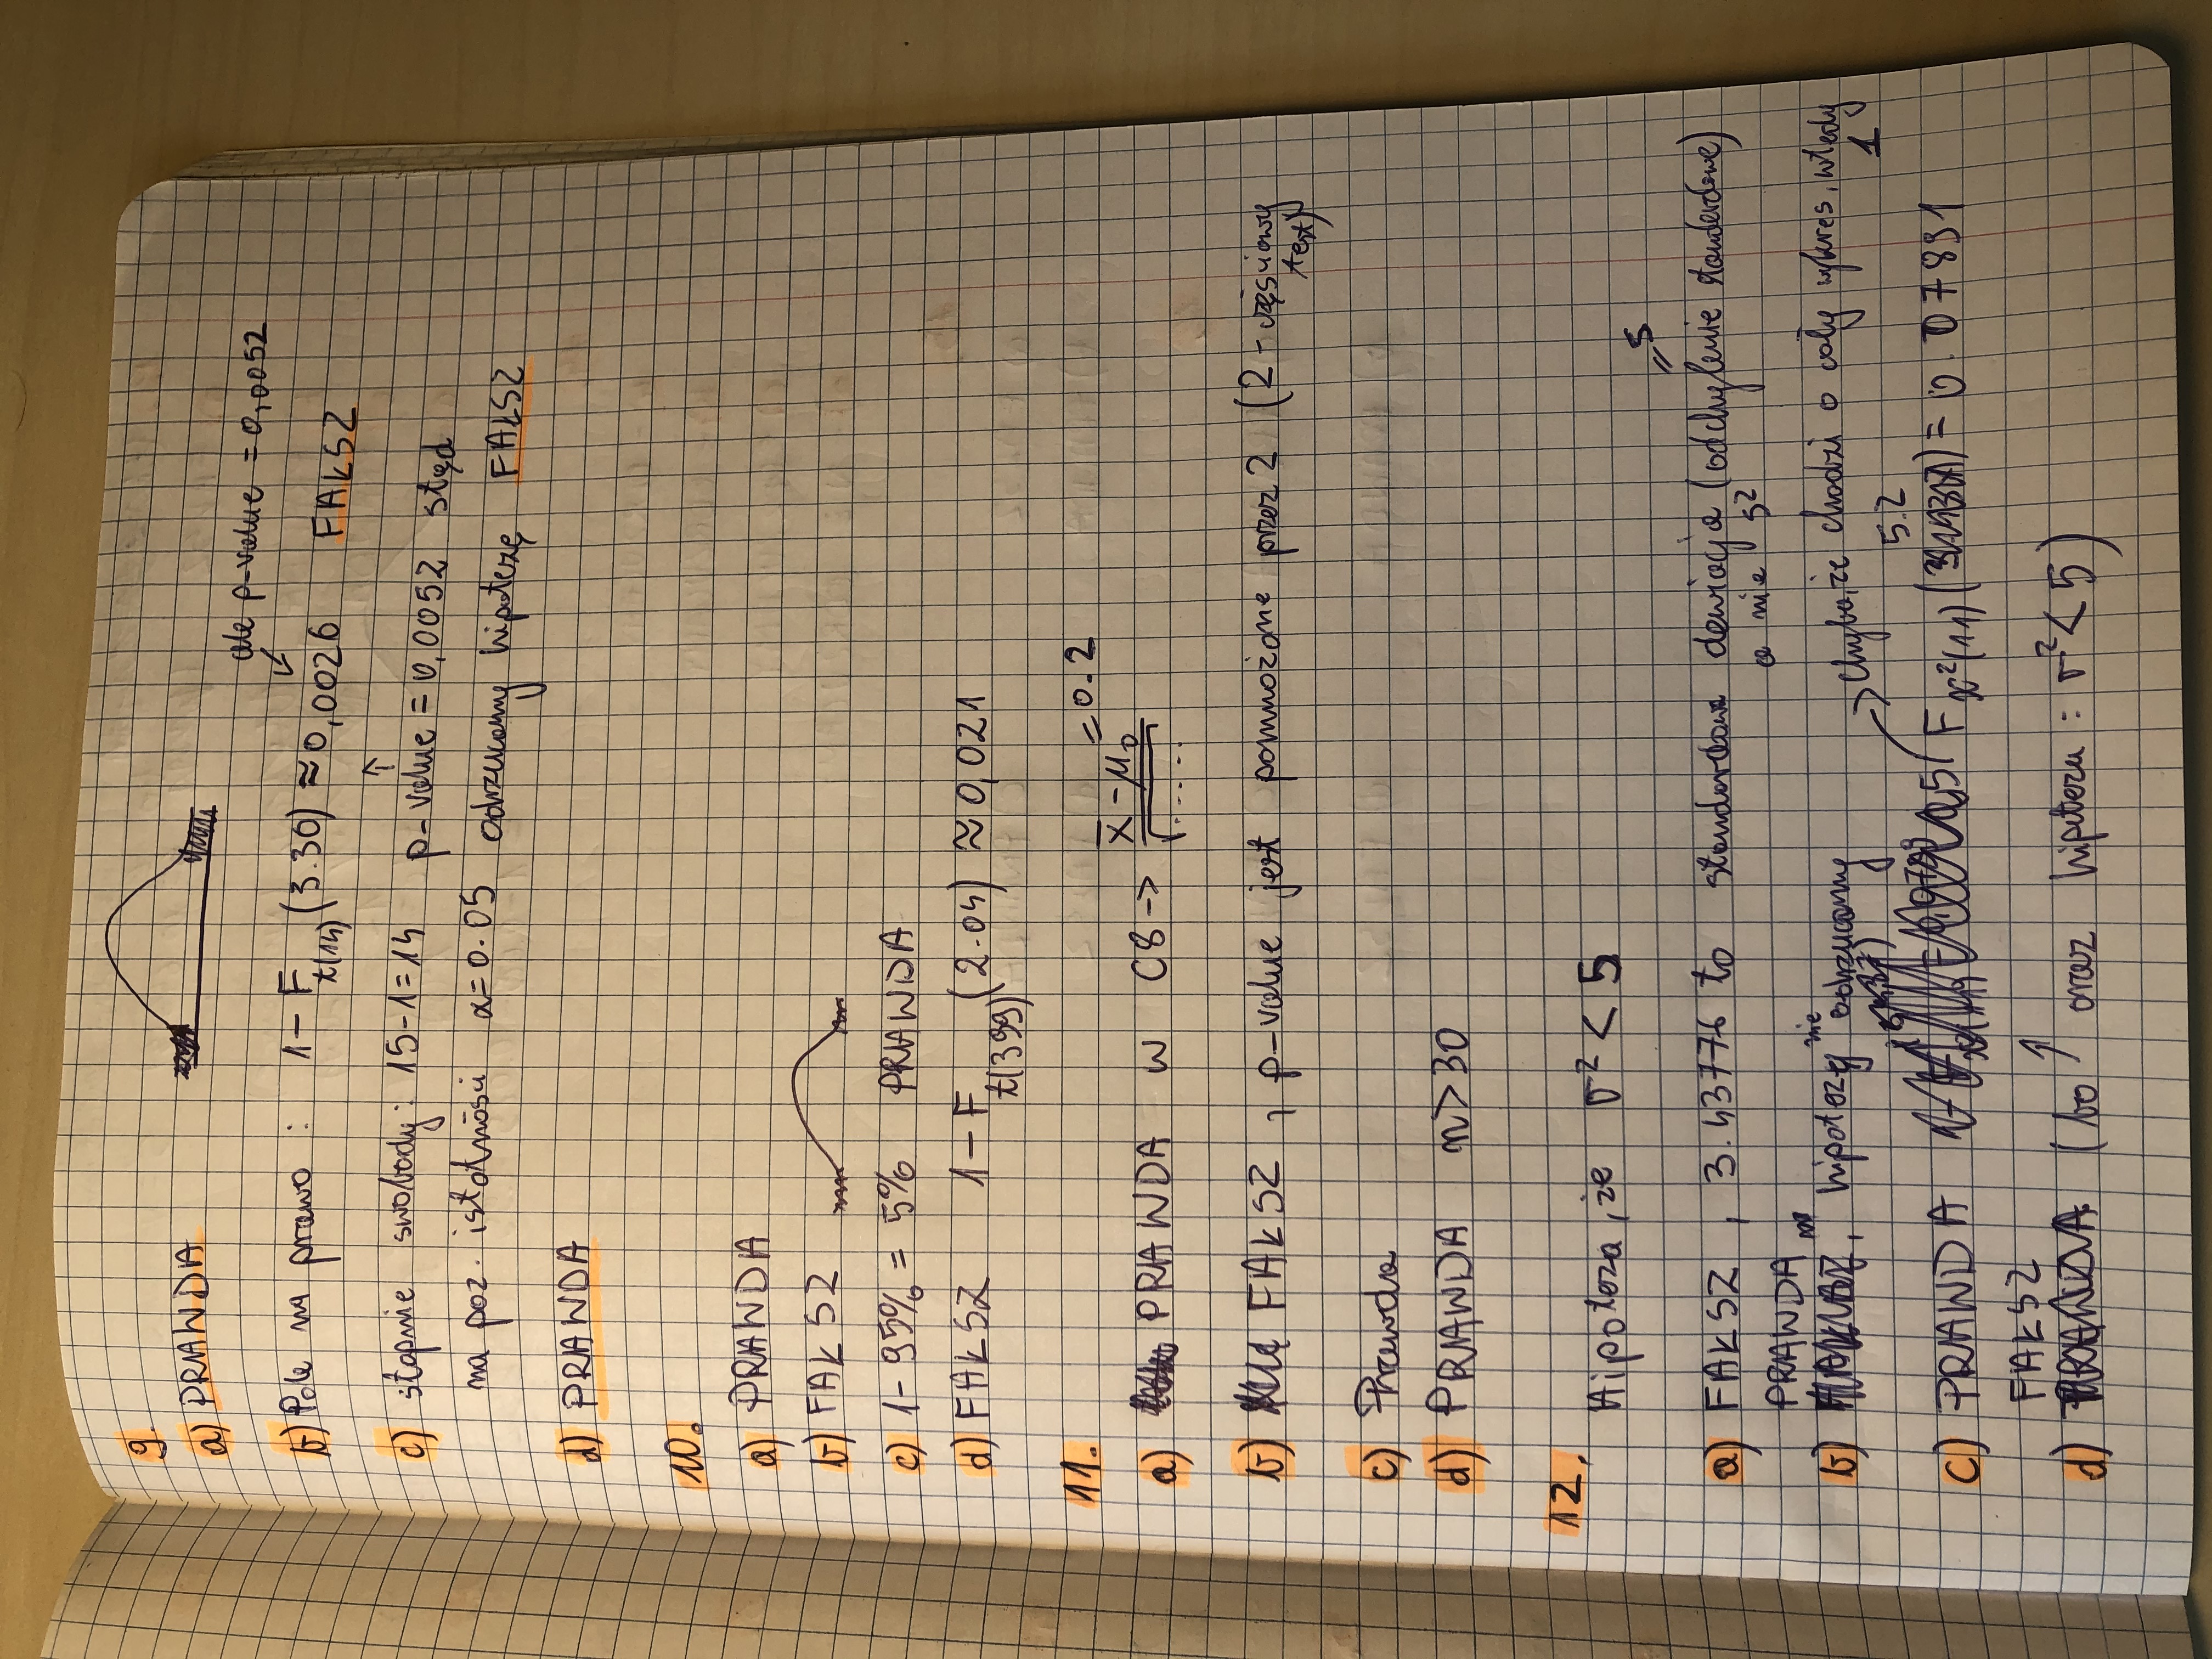 9.
a) PRAWDA
ale p-value = 0,0052
b) Pole na prawo : 1 - F t(14) (3.30) ≈ 0,0026 FAŁSZ
c) stopnie swobody: 15-1=14 p-value = 0,0052 stąd
na poz. istotności α=0.05 odrzucamy hipotezę FAŁSZ
d) PRAWDA
10.
a) PRAWDA
b) FAŁSZ
c) 1-95% = 5% PRAWDA
d) FAŁSZ 1 - F t(399) (2.04) ≈ 0,021
11.
= 0.2
a) PRAWDA w C8 -> x̄ - μ₀ / √.....
b) FAŁSZ, p-value jest pomnożone przez 2 (2-częściowy
test)
c) Prawda
d) PRAWDA n > 30
12.
Hipoteza, że σ² < 5
= s
a) FAŁSZ, 3.43776 to standardowa dewiacja (odchylenie standardowe)
a nie s²
PRAWDA
b) hipotezy nie odrzucamy
chyba, że chodzi o cały wykres, wtedy
1
5.2
c) PRAWDA F χ²(11) ( ) = 0.07891
FAŁSZ
d) (bo ↑ oraz hipoteza : σ² < 5)